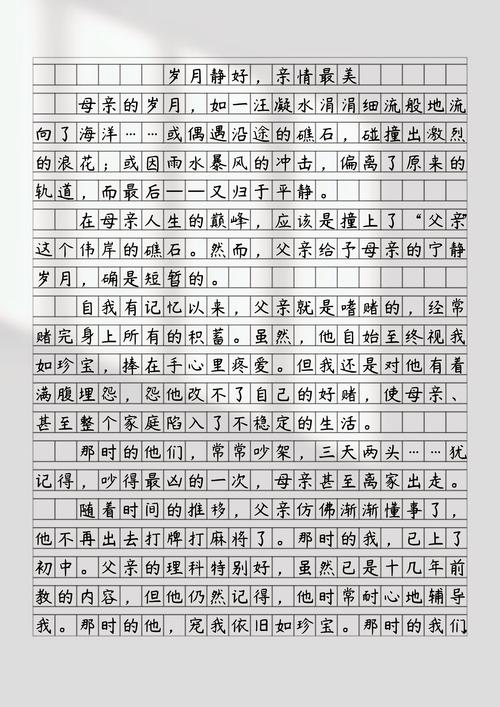 岁月静好，亲情最美
母亲的岁月，如一汪凝水涓涓细流般地流
向了海洋……或偶遇沿途的礁石，碰撞出激烈
的浪花；或因雨水暴风的冲击，偏离了原来的
轨道，而最后——又归于平静。
在母亲人生的巅峰，应该是撞上了“父亲”
这个伟岸的礁石。然而，父亲给予母亲的宁静
岁月，确是短暂的。
自我有记忆以来，父亲就是嗜赌的，经常
赌完身上所有的积蓄。虽然，他自始至终视我
如珍宝，捧在手心里疼爱。但我还是对他有着
满腹埋怨，怨他改不了自己的好赌，使母亲、
甚至整个家庭陷入了不稳定的生活。
那时的他们，常常吵架，三天两头……犹
记得，吵得最凶的一次，母亲甚至离家出走。
随着时间的推移，父亲仿佛渐渐懂事了，
他不再出去打牌打麻将了。那时的我，已上了
初中。父亲的理科特别好，虽然已是十几年前
教的内容，但他仍然记得，他时常耐心地辅导
我。那时的他，宠我依旧如珍宝。那时的我们